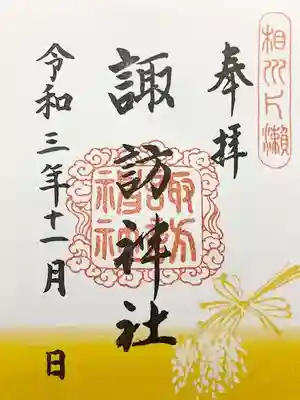 相州片瀬
奉拝
諏訪神社
令和三年十一月 日